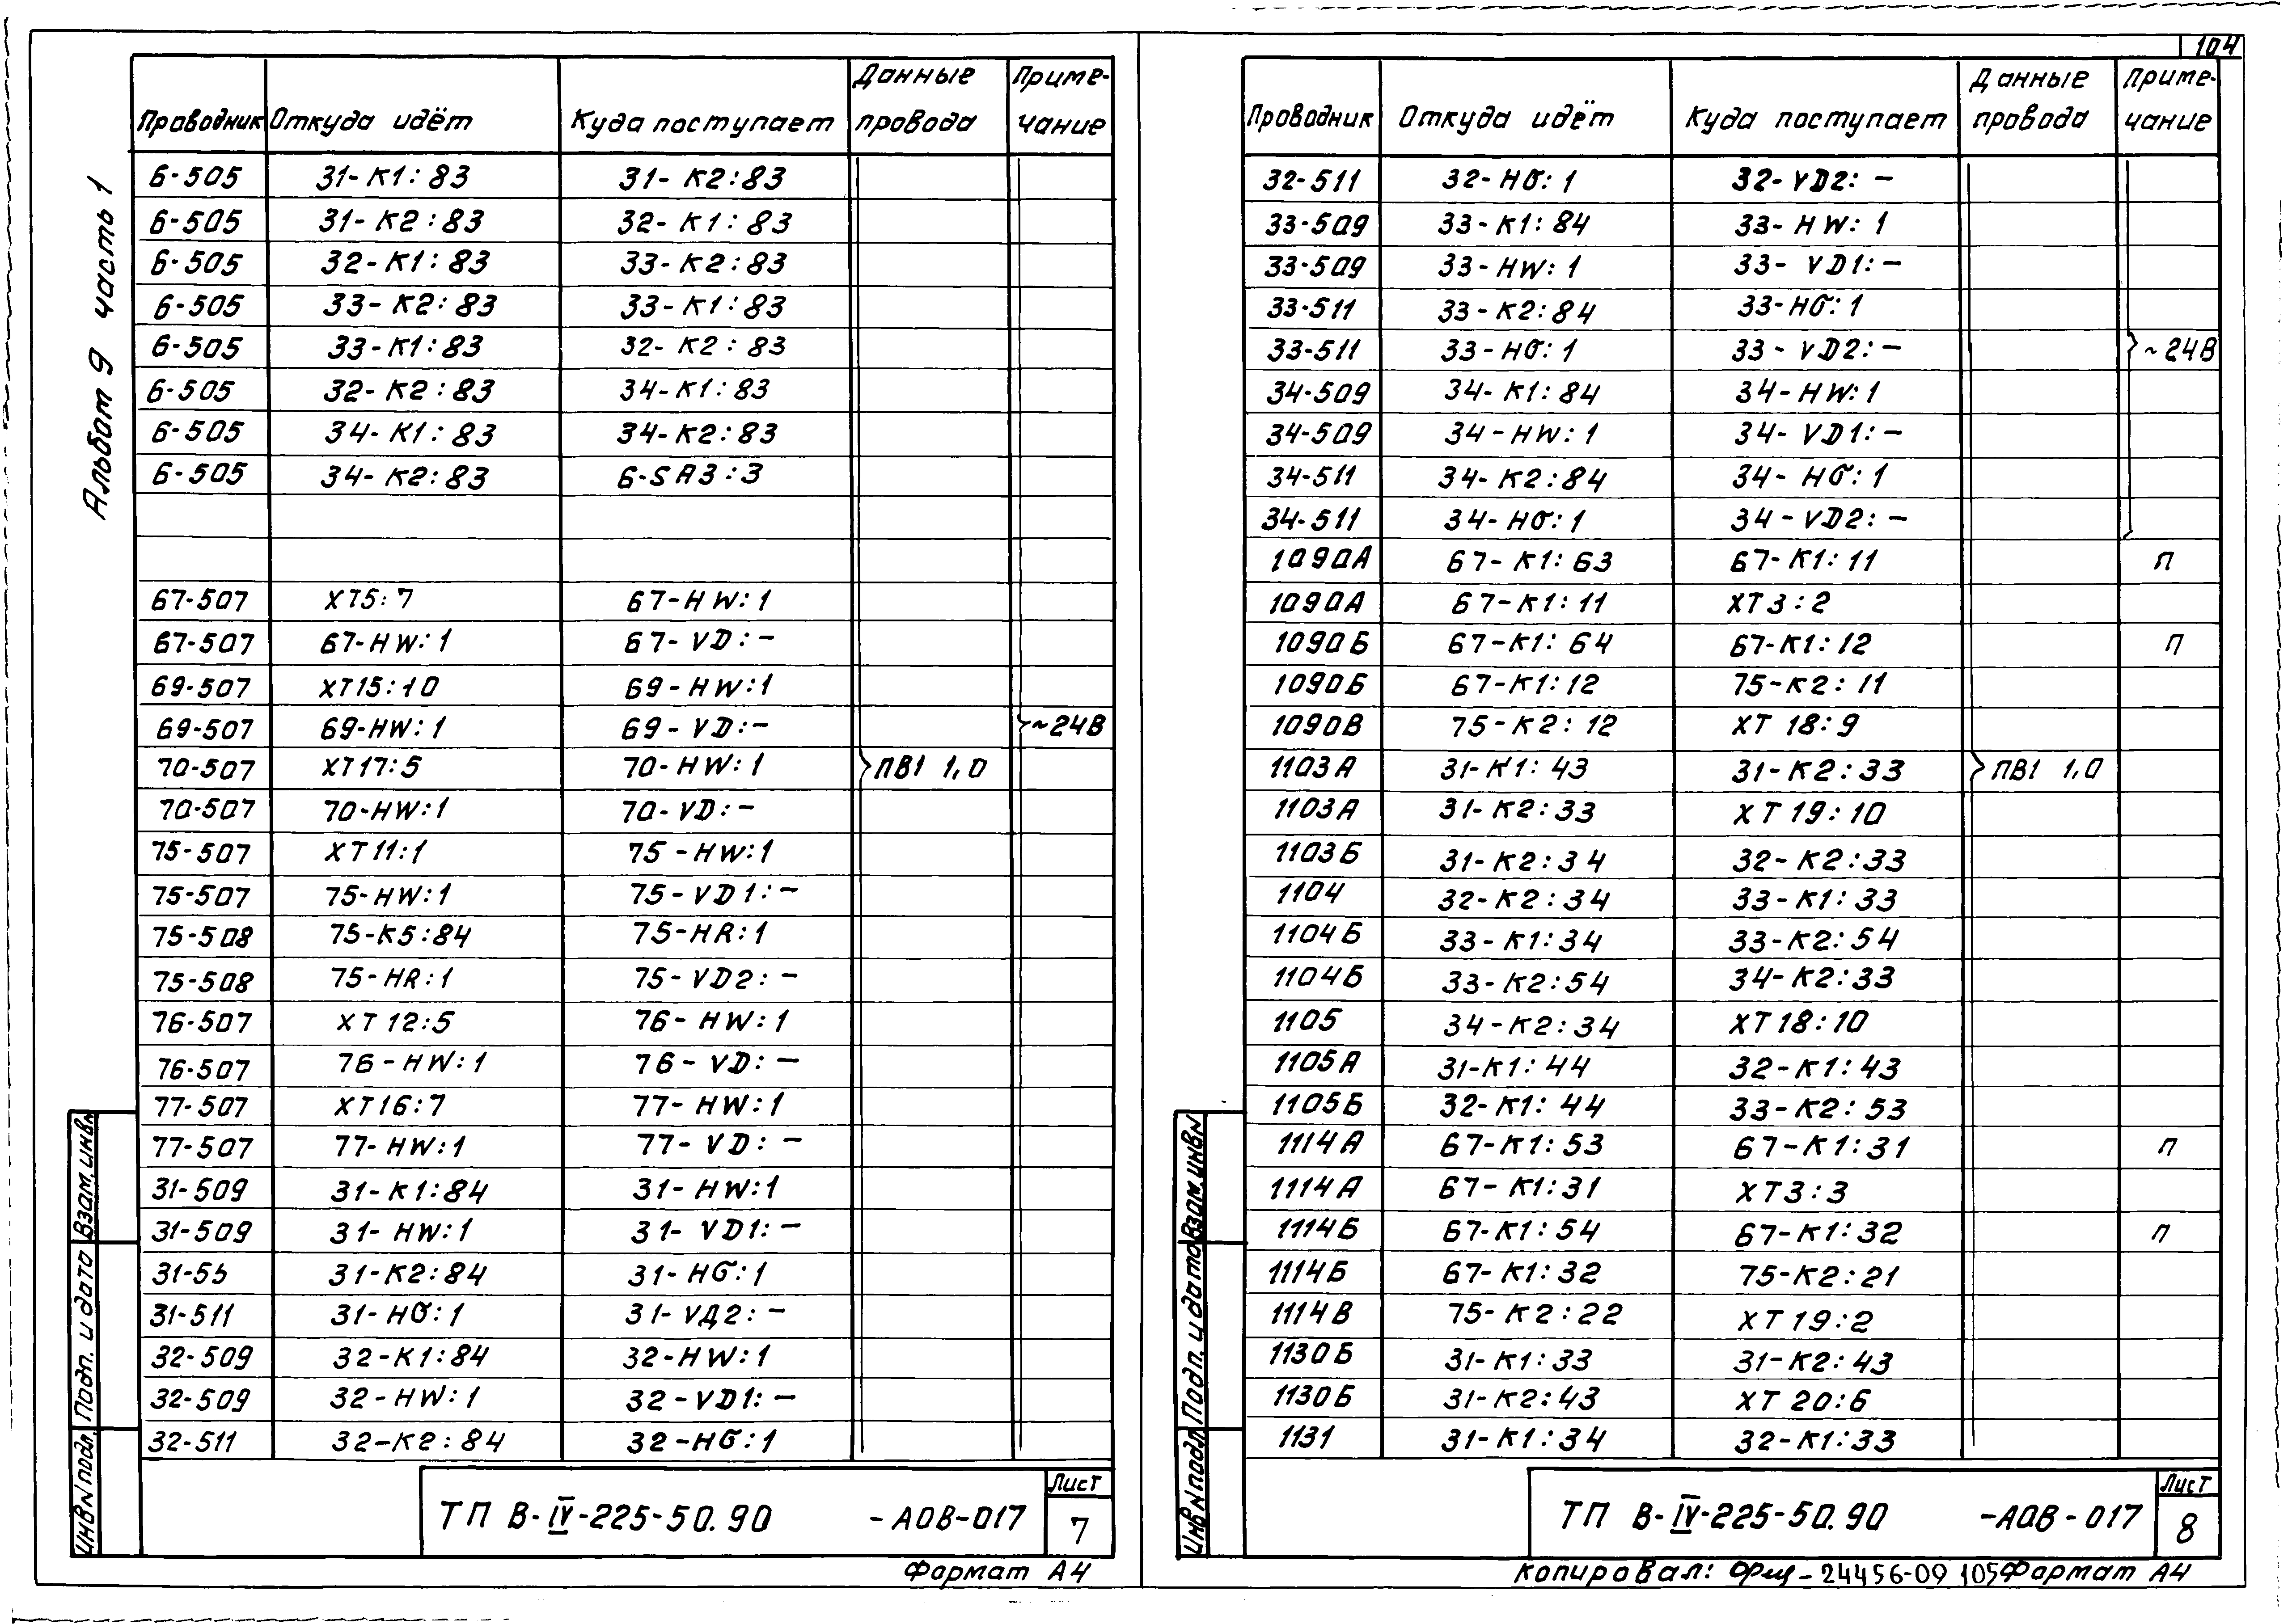 104
Альбом 9 часть 1
Проводник Откуда идёт Куда поступает Данные провода Примечание
6-505 31-К1:83 31-К2:83
6-505 31-К2:83 32-К1:83
6-505 32-К1:83 33-К2:83
6-505 33-К2:83 33-К1:83
6-505 33-К1:83 32-К2:83
6-505 32-К2:83 34-К1:83
6-505 34-К1:83 34-К2:83
6-505 34-К2:83 6-SA3:3
67-507 ХТ5:7 67-HW:1
67-507 67-HW:1 67-VD:-
69-507 ХТ15:10 69-HW:1
69-507 69-HW:1 69-VD:- ~24В
70-507 ХТ17:5 70-HW:1 ПВ1 1,0
70-507 70-HW:1 70-VD:-
75-507 ХТ11:1 75-HW:1
75-507 75-HW:1 75-VD1:-
75-508 75-К5:84 75-HR:1
75-508 75-HR:1 75-VD2:-
76-507 ХТ12:5 76-HW:1
76-507 76-HW:1 76-VD:-
77-507 ХТ16:7 77-HW:1
77-507 77-HW:1 77-VD:-
31-509 31-К1:84 31-HW:1
31-509 31-HW:1 31-VD1:-
31-5 31-К2:84 31-HG:1
31-511 31-HG:1 31-VД2:-
32-509 32-К1:84 32-HW:1
32-509 32-HW:1 32-VD1:-
32-511 32-К2:84 32-HG:1
Взам.инв№
Подп. и дата
Инв№подл.
ТП В-IV-225-50.90 -АОВ-017
Лист
7
Формат А4
Проводник Откуда идёт Куда поступает Данные провода Примечание
32-511 32-HG:1 32-VD2:-
33-509 33-К1:84 33-HW:1
33-509 33-HW:1 33-VD1:-
33-511 33-К2:84 33-HG:1
33-511 33-HG:1 33-VD2:- ~24В
34-509 34-К1:84 34-HW:1
34-509 34-HW:1 34-VD1:-
34-511 34-К2:84 34-HG:1
34-511 34-HG:1 34-VD2:-
1090А 67-К1:63 67-К1:11 П
1090А 67-К1:11 ХТ3:2
1090Б 67-К1:64 67-К1:12 П
1090Б 67-К1:12 75-К2:11
1090В 75-К2:12 ХТ18:9
1103А 31-К1:43 31-К2:33 ПВ1 1,0
1103А 31-К2:33 ХТ19:10
1103Б 31-К2:34 32-К2:33
1104 32-К2:34 33-К1:33
1104Б 33-К1:34 33-К2:54
1104Б 33-К2:54 34-К2:33
1105 34-К2:34 ХТ18:10
1105А 31-К1:44 32-К1:43
1105Б 32-К1:44 33-К2:53
1114А 67-К1:53 67-К1:31 П
1114А 67-К1:31 ХТ3:3
1114Б 67-К1:54 67-К1:32 П
1114Б 67-К1:32 75-К2:21
1114В 75-К2:22 ХТ19:2
1130Б 31-К1:33 31-К2:43
1130Б 31-К2:43 ХТ20:6
1131 31-К1:34 32-К1:33
Взам.инв№
Подп. и дата
Инв№подл.
ТП В-IV-225-50.90 -АОВ-017
Лист
8
Копировал: 24456-09 105 Формат А4